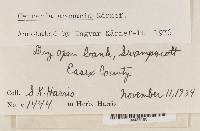 Cetraria arenaria Kärnef.
Annotated by Ingvar Kärnefelt 1976
Dry open bank, Swampscott
Essex County
Coll. S. K. Harris November 11, 1934
No. 1444 in Herb. Harris